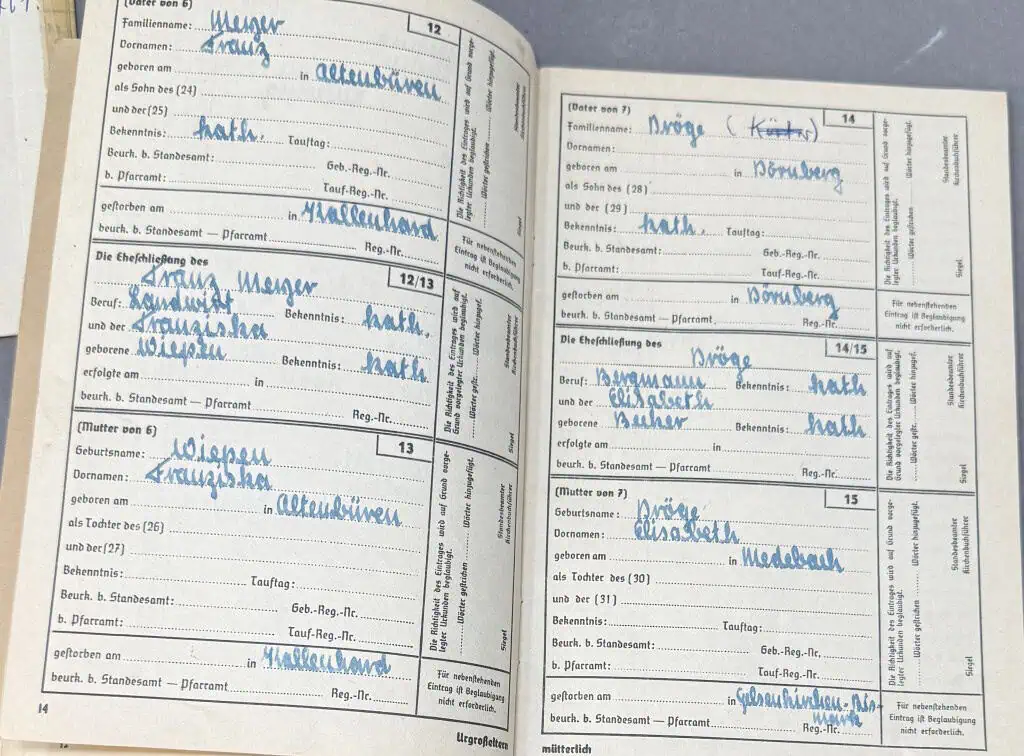 (Vater von 6) 12
Familienname: Meyer
Vornamen: Franz
geboren am in Altenbüren
als Sohn des (24)
und der (25)
Bekenntnis: kath. Tauftag:
Beurk. b. Standesamt: Geb.-Reg.-Nr.
b. Pfarramt: Tauf-Reg.-Nr.
gestorben am in Kallenhard
beurk. b. Standesamt — Pfarramt Reg.-Nr.
Die Richtigkeit des Eintrages wird auf Grund vorge-
legter Urkunden beglaubigt.
Wörter gestrichen Wörter hinzugefügt.
Standesbeamter
Kirchenbuchführer
Siegel
Für nebenstehenden
Eintrag ist Beglaubigung
nicht erforderlich.
Die Eheschließung des 12/13
Franz Meyer
Beruf: Landwirt Bekenntnis: kath.
und der Franziska
geborene Wiepen Bekenntnis: kath
erfolgte am in
beurk. b. Standesamt — Pfarramt Reg.-Nr.
Die Richtigkeit des Eintrages wird auf
Grund vorgelegter Urkunden beglaubigt.
Wörter gestr. Wörter hinzugef.
Standesbeamter
Kirchenbuchführer
Siegel
(Mutter von 6) 13
Geburtsname: Wiepen
Vornamen: Franziska
geboren am in Altenbüren
als Tochter des (26)
und der (27)
Bekenntnis: Tauftag:
Beurk. b. Standesamt: Geb.-Reg.-Nr.
b. Pfarramt: Tauf-Reg.-Nr.
gestorben am in Kallenhard
beurk. b. Standesamt — Pfarramt Reg.-Nr.
Die Richtigkeit des Eintrages wird auf Grund vorge-
legter Urkunden beglaubigt.
Wörter gestrichen Wörter hinzugefügt.
Standesbeamter
Kirchenbuchführer
Siegel
Für nebenstehenden
Eintrag ist Beglaubigung
nicht erforderlich.
14
Urgroßeltern
(Vater von 7) 14
Familienname: Dröge
Vornamen:
geboren am in Dörnberg
als Sohn des (28)
und der (29)
Bekenntnis: kath. Tauftag:
Beurk. b. Standesamt: Geb.-Reg.-Nr.
b. Pfarramt: Tauf-Reg.-Nr.
gestorben am in Dörnberg
beurk. b. Standesamt — Pfarramt Reg.-Nr.
Die Richtigkeit des Eintrages wird auf Grund vorge-
legter Urkunden beglaubigt.
Wörter gestrichen Wörter hinzugefügt.
Standesbeamter
Kirchenbuchführer
Siegel
Für nebenstehenden
Eintrag ist Beglaubigung
nicht erforderlich.
Die Eheschließung des 14/15
Dröge
Beruf: Bergmann Bekenntnis: kath
und der Elisabeth
geborene Becker Bekenntnis: kath
erfolgte am in
beurk. b. Standesamt — Pfarramt Reg.-Nr.
Die Richtigkeit des Eintrages wird auf
Grund vorgelegter Urkunden beglaubigt.
Wörter gestr. Wörter hinzugef.
Standesbeamter
Kirchenbuchführer
Siegel
(Mutter von 7) 15
Geburtsname: Dröge
Vornamen: Elisabeth
geboren am in Medebach
als Tochter des (30)
und der (31)
Bekenntnis: Tauftag:
Beurk. b. Standesamt: Geb.-Reg.-Nr.
b. Pfarramt: Tauf-Reg.-Nr.
gestorben am in Gelsenkirchen-Bis-
marck
beurk. b. Standesamt — Pfarramt Reg.-Nr.
Die Richtigkeit des Eintrages wird auf Grund vorge-
legter Urkunden beglaubigt.
Wörter gestrichen Wörter hinzugefügt.
Standesbeamter
Kirchenbuchführer
Siegel
Für nebenstehenden
Eintrag ist Beglaubigung
nicht erforderlich.
mütterlich